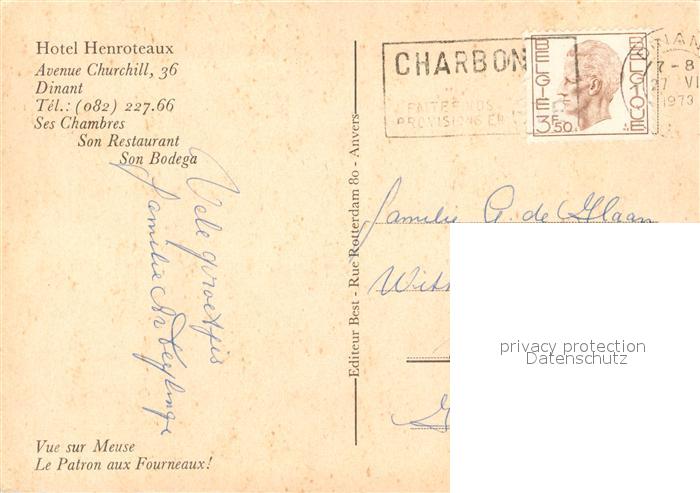 Hotel Henroteaux
Avenue Churchill, 36
Dinant
Tél.: (082) 227.66
Ses Chambres
Son Restaurant
Son Bodega
Vele groetjes
familie
Vue sur Meuse
Le Patron aux Fourneaux!
Editeur Best - Rue Rotterdam 80 - Anvers
CHARBON
FAITES VOS
PROVISIONS EN
BELGIE
BELGIQUE
3F50
DINAN
17-8
27 VI
1973
familie A. de Haan
With
privacy protection
Datenschutz